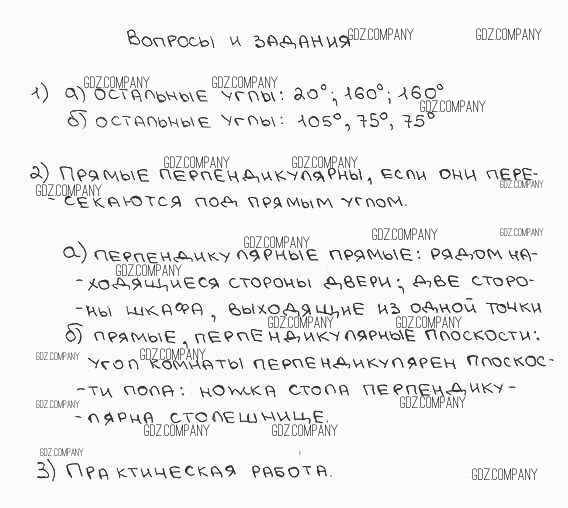 Вопросы и задания GDZ.COMPANY GDZ.COMPANY
GDZ.COMPANY GDZ.COMPANY
1) а) Остальные углы: 20°; 160°; 160°
GDZ.COMPANY
б) Остальные углы: 105°, 75°, 75°
GDZ.COMPANY GDZ.COMPANY
2) Прямые перпендикулярны, если они пере-
GDZ.COMPANY GDZ.COMPANY
- секаются под прямым углом.
GDZ.COMPANY GDZ.COMPANY GDZ.COMPANY
а) перпендикулярные прямые: рядом на-
GDZ.COMPANY
- ходящиеся стороны двери; две сторо-
- ны шкафа, выходящие из одной точки
GDZ.COMPANY GDZ.COMPANY
б) прямые, перпендикулярные плоскости:
GDZ.COMPANY GDZ.COMPANY
угол комнаты перпендикулярен плоскос-
- ти пола: ножка стола перпендику-
GDZ.COMPANY GDZ.COMPANY
- лярна столешнице.
GDZ.COMPANY GDZ.COMPANY
GDZ.COMPANY
3) Практическая работа.
GDZ.COMPANY